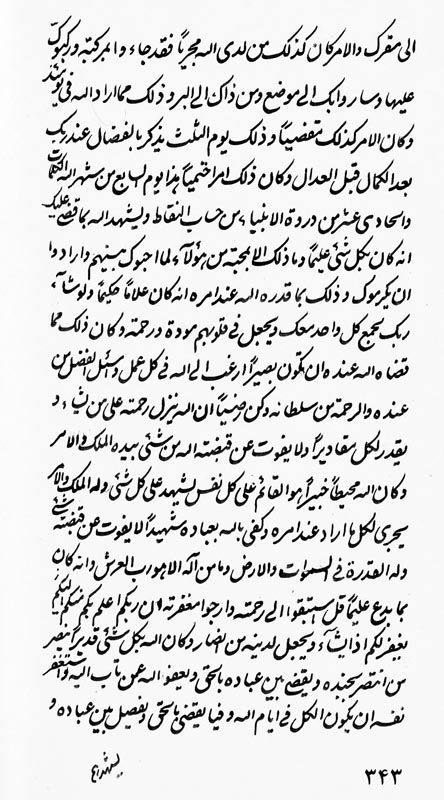 الی مقرک والامر کان کذلک من لدی الله مجریاً فقد جاء و ا بمرکبته و رکبوک
علیها و ساروا بک الی موضع و من ذاک الی البر و ذلک مما اراد الله فی
و کان الامر کذلک مقضیباً و ذلک یوم الثلث یذکر بالفضال عند ربک
بعد الکمال قبل العدال و کان ذلک امراً حتمیاً هذا یوم السابع من شهر الله الکلمات
والحادی عشر من دورة الانبیاء من حساب النقاط و لیشهد الله بما قضی علیک
انه کان بکل شئی علیماً و ما ذلک الا بمحبته من هؤلآء لما احبوک بینهم و اراد وا
ان یکرموک و ذلک بما قدره الله عند امره انه کان علاماً حکیماً و لو شآء
ربک یجمع کل واحد معک و یجعل فی قلوبهم مودة و رحمته و کان ذلک مما
قضاه الله عنده ان تکون بصیراً ارغب الی الله فی کل عمل و اسئل الفضل من
عنده والرحمة من سلطانه و کن رضیاً ان الله ینزل رحمته علی من یشآء و
یقدر لکل مقادیراً و لا یفوت عن قبضته الله من شئی بیده الملک فی الامر
و کان الله محیطاً خبیراً هو القائم علی کل نفس لیشهد علی کل شئی و له الملک والامر
یجری لکل ما اراد عند امره و کفی بالله بعباده شهیداً لا یفوت عن قبضته شئی
و له القدرة فی السموات والارض و ما من اله الا هو رب العرش و انه کان
بما یدع علیماً قل استبقوا الی رحمته و ارجوا مغفرته لان ربکم اعلم بکم منکم الیکم
یغفر لکم اذا یشآء و یجعل لدینه من انصار و کان الله بکل شئی قدیراً ینصر
من انتصر بجنده و یقضی بین عباده بالحق و یعفو الله عمن تاب الیه واستغفر
نفسه ان یکون الکل فی ایام الله و فیا یقضی بالحق و یفصل بین عباده و
۳۴۳